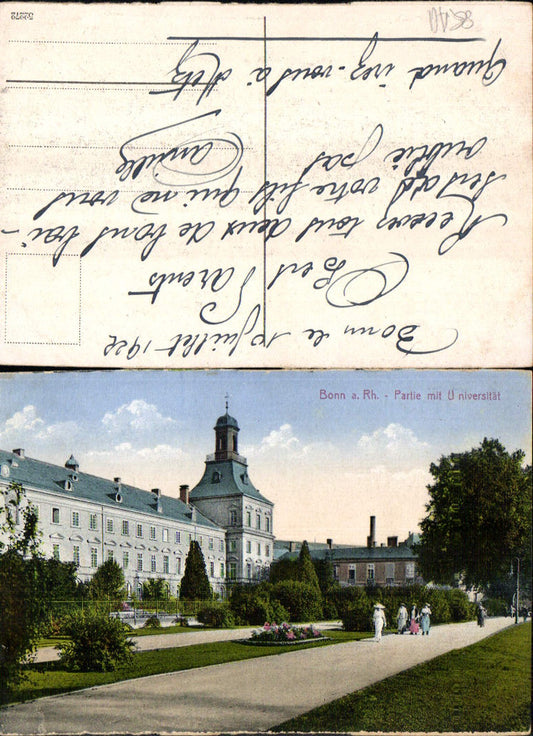 Bonn le 1er Juillet 1922
Cers Parents
Recevez tous deux de bons bai-
sers de votre fils qui ne vous
oublie pas
Camille
Quand irez-vous à Metz
Bonn a. Rh. - Partie mit Universität